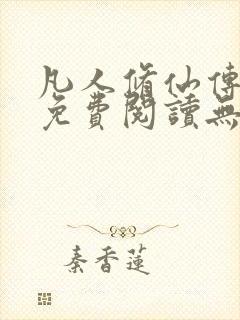 凡人脩仙傳
免費閱讀無
秦香蓮